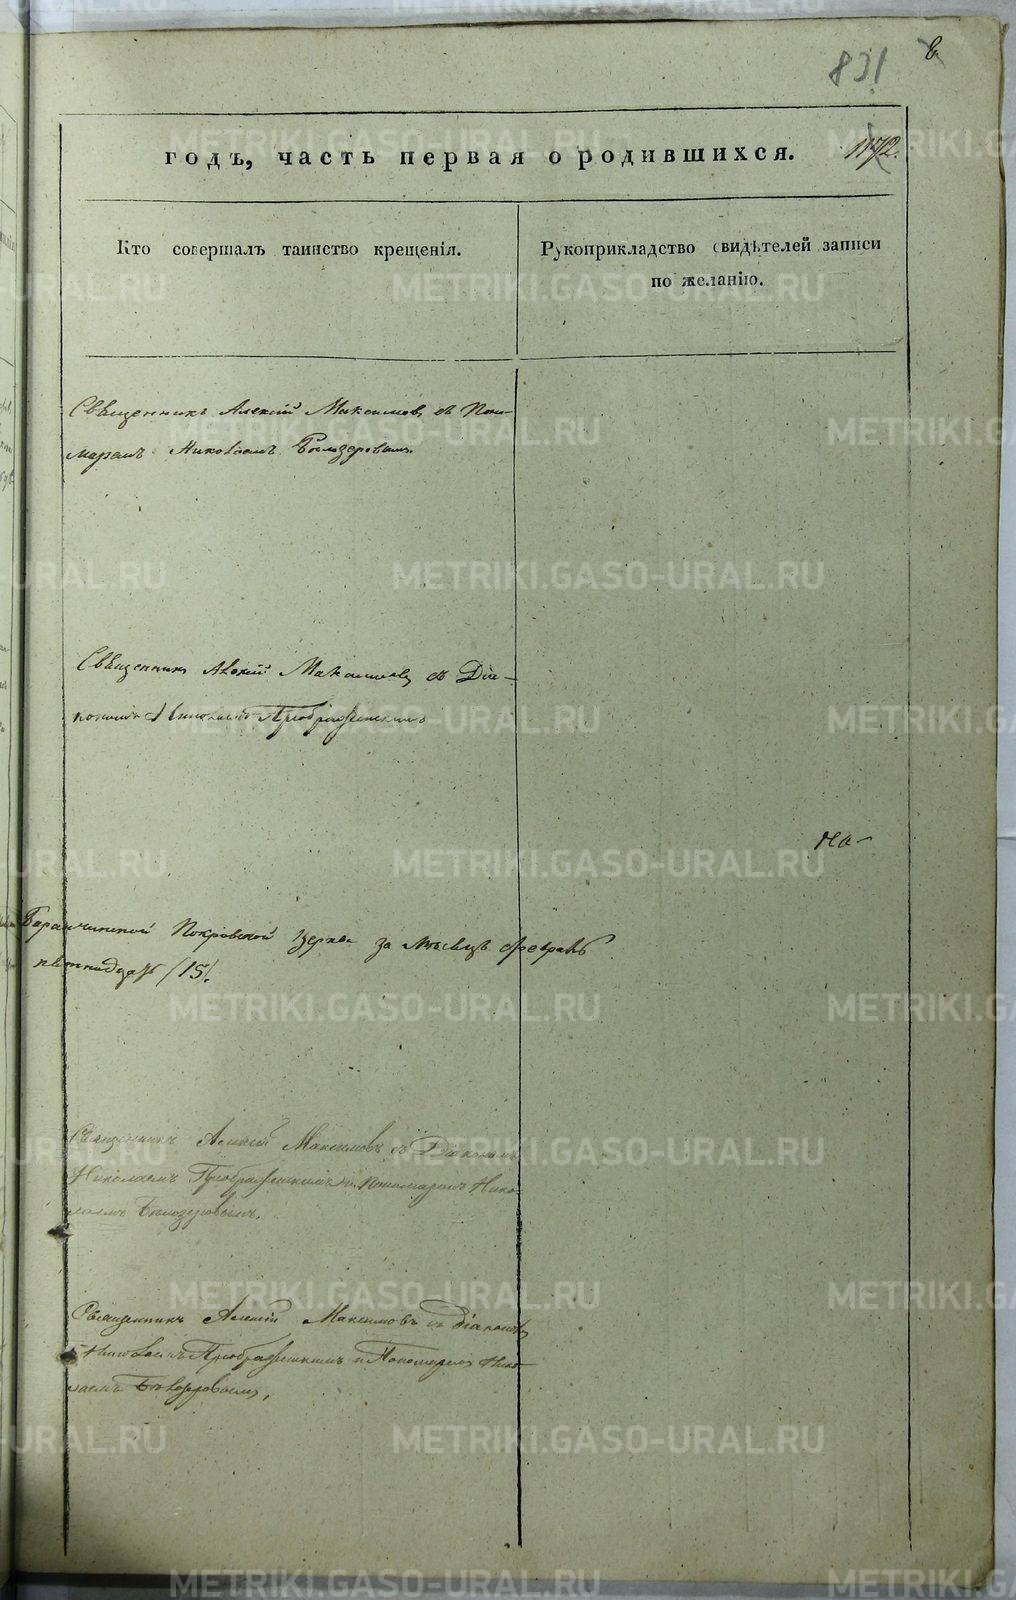 831
годъ, часть первая о родившихся.
Кто совершалъ таинство крещенія.
Рукоприкладство свидѣтелей записи
по желанію.
Священникъ Алексій Максимовъ съ Поно-
маремъ Николаемъ Бѣлозеровымъ.
Священникъ Алексій Максимовъ съ Діа-
кономъ Николаемъ Преображенскимъ
На-
Баранчинской Покровской церкви за мѣсяцъ февраль
пятнадцать /15/.
Священникъ Алексій Максимовъ съ Діакономъ
Николаемъ Преображенскимъ и Пономаремъ Нико-
лаемъ Бѣлозеровымъ.
Священникъ Алексій Максимовъ съ Діакономъ
Николаемъ Преображенскимъ и Пономаремъ Нико-
лаемъ Бѣлозеровымъ.
METRIKI.GASO-URAL.RU